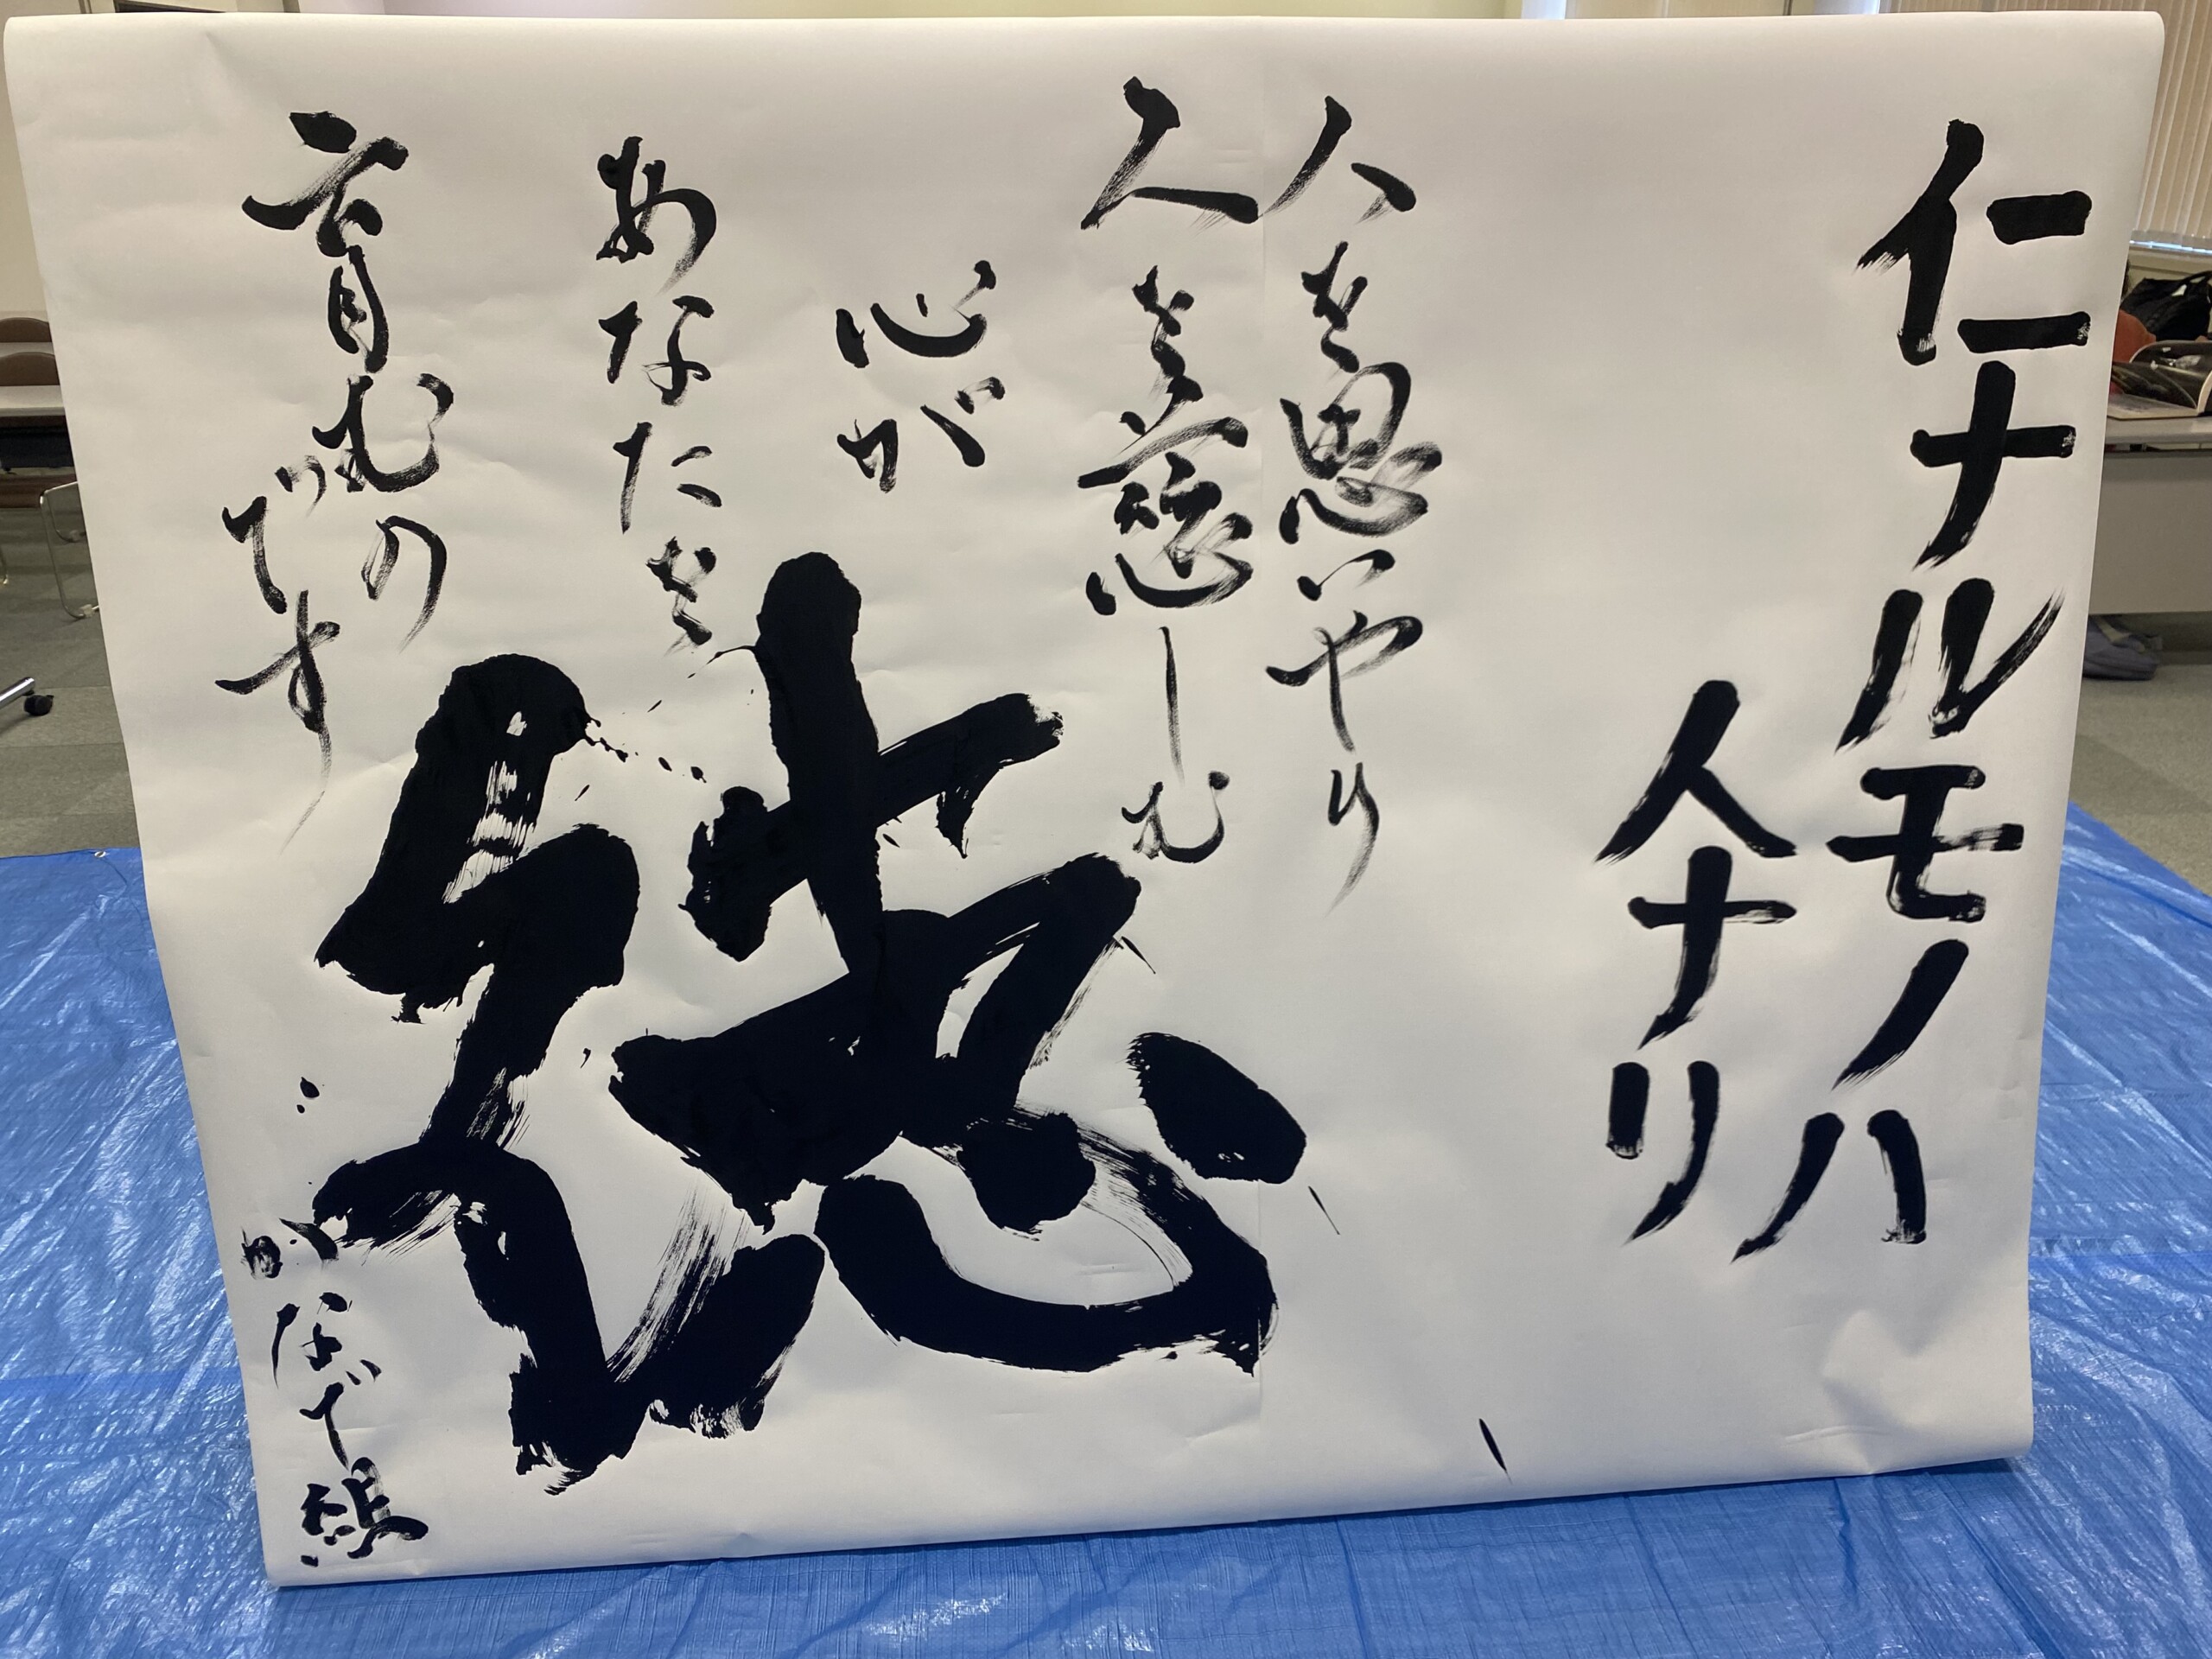 仁ナルモノハ
人ナリ
人を思いやり
人を慈しむ
心が
あなたを
育むの
です
志
かなで組